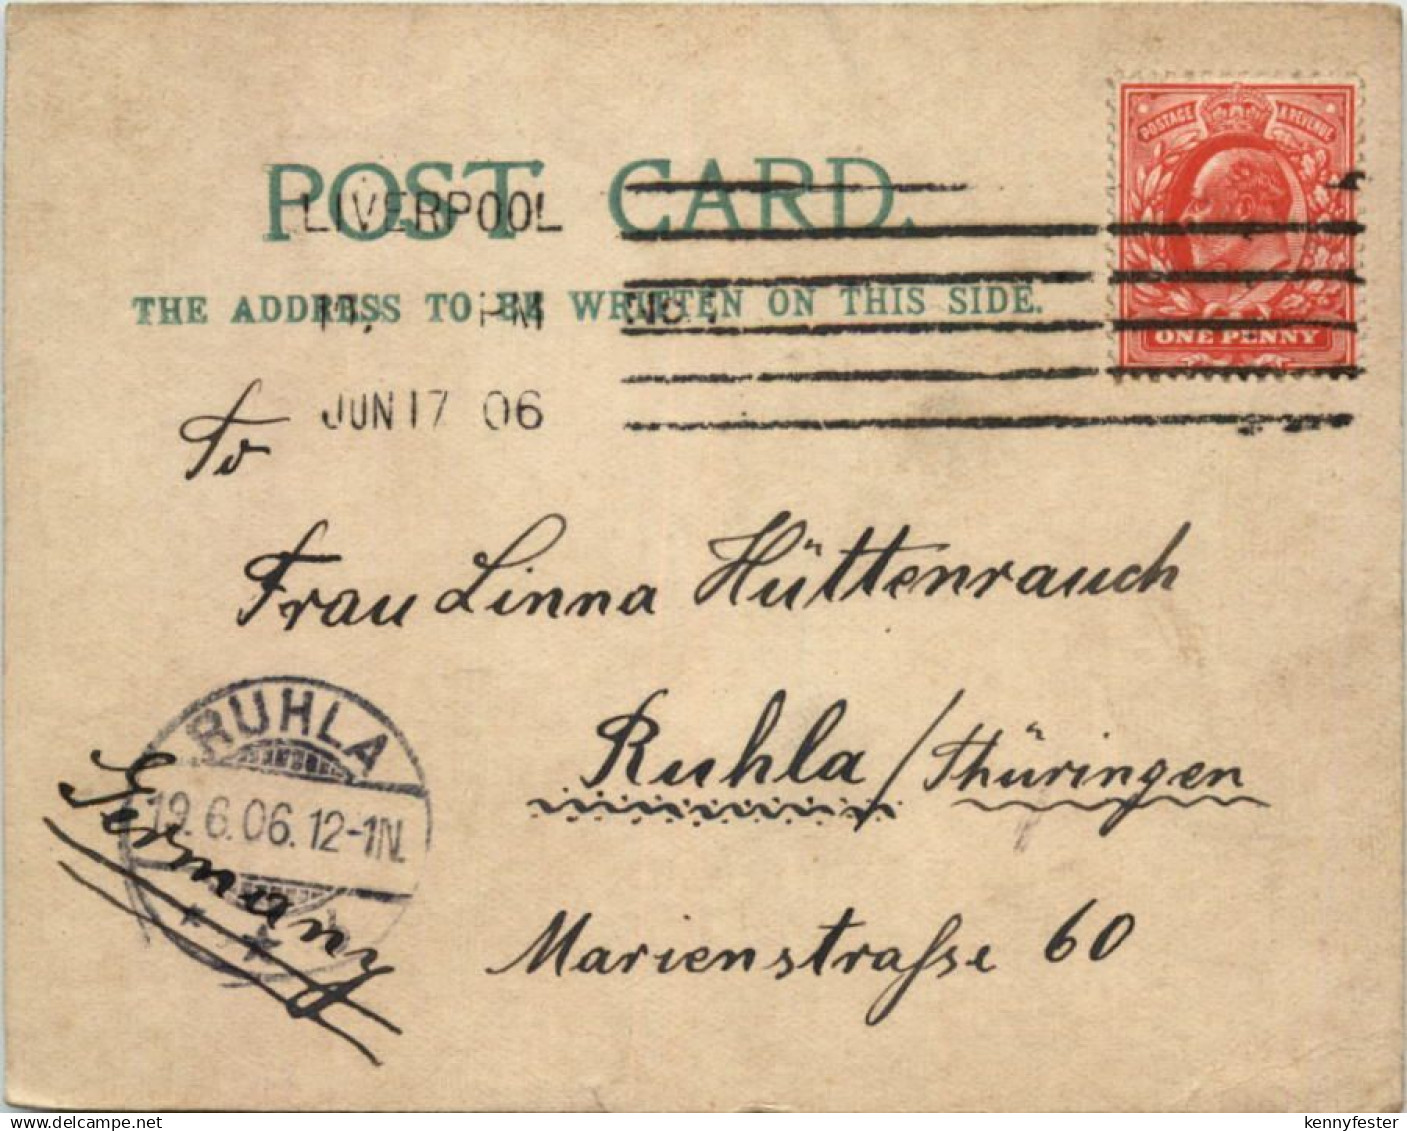 POST CARD.
THE ADDRESS TO BE WRITTEN ON THIS SIDE.
LIVERPOOL
PM
JUN 17 06
POSTAGE & REVENUE
ONE PENNY
To
Frau Linna Hüttenrauch
Ruhla / Thüringen
Marienstraſse 60
Germany
RUHLA
19.6.06.12-1N.
kennyfester